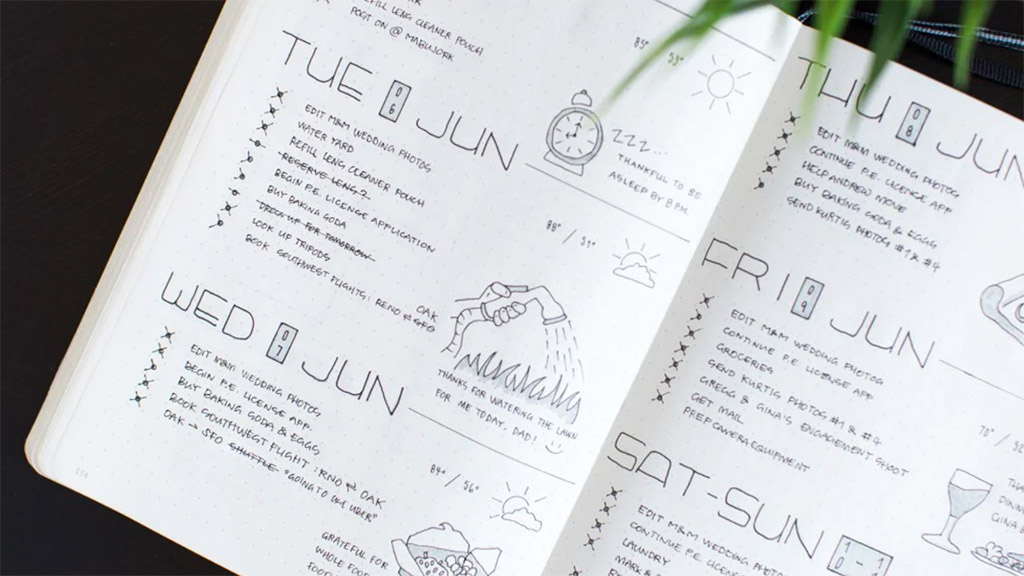 REFILL LENG CLEANER POUCH
POST ON @ MABUWORK
85° 53°
TUE 06 JUN
EDIT M&M WEDDING PHOTOS
WATER YARD
REFILL LENG CLEANER POUCH
RESERVE LENG 2
BEGIN P.E. LICENSE APPLICATION
BUY BAKING SODA
DRESS UP FOR TOMORROW
LOOK UP TRIPODS
BOOK SOUTHWEST FLIGHTS: RENO ⇄ SFO
OAK
ZZZ...
THANKFUL TO BE
ASLEEP BY 8 PM
88° / 51°
THANKS FOR WATERING THE LAWN
FOR ME TODAY, DAD!
WED 07 JUN
EDIT M&M WEDDING PHOTOS
BEGIN P.E. LICENSE APP.
BUY BAKING SODA & EGGS
BOOK SOUTHWEST FLIGHT: RENO ⇄ OAK
OAK → SFO SHUTTLE "GOING TO USE UBER"
84° / 56°
GRATEFUL FOR
WHOLE FOODS
THU 08 JUN
EDIT M&M WEDDING PHOTOS
CONTINUE P.E. LICENSE APP
HELP ANDREW MOVE
BUY BAKING SODA & EGGS
SEND KURTIG PHOTOG #1 & #4
FRI 09 JUN
EDIT M&M WEDDING PHOTOS
CONTINUE P.E. LICENSE APP
GROCERIES
SEND KURTIG PHOTOG #1 & #4
GREGG & GINA'S ENGAGEMENT SHOOT
GET MAIL
PREP CAMERA EQUIPMENT
70° / 52
DINNER
GINA
SAT-SUN 10-1
EDIT M&M WEDDING PHOTOS
CONTINUE P.E. LICENSE
LAUNDRY